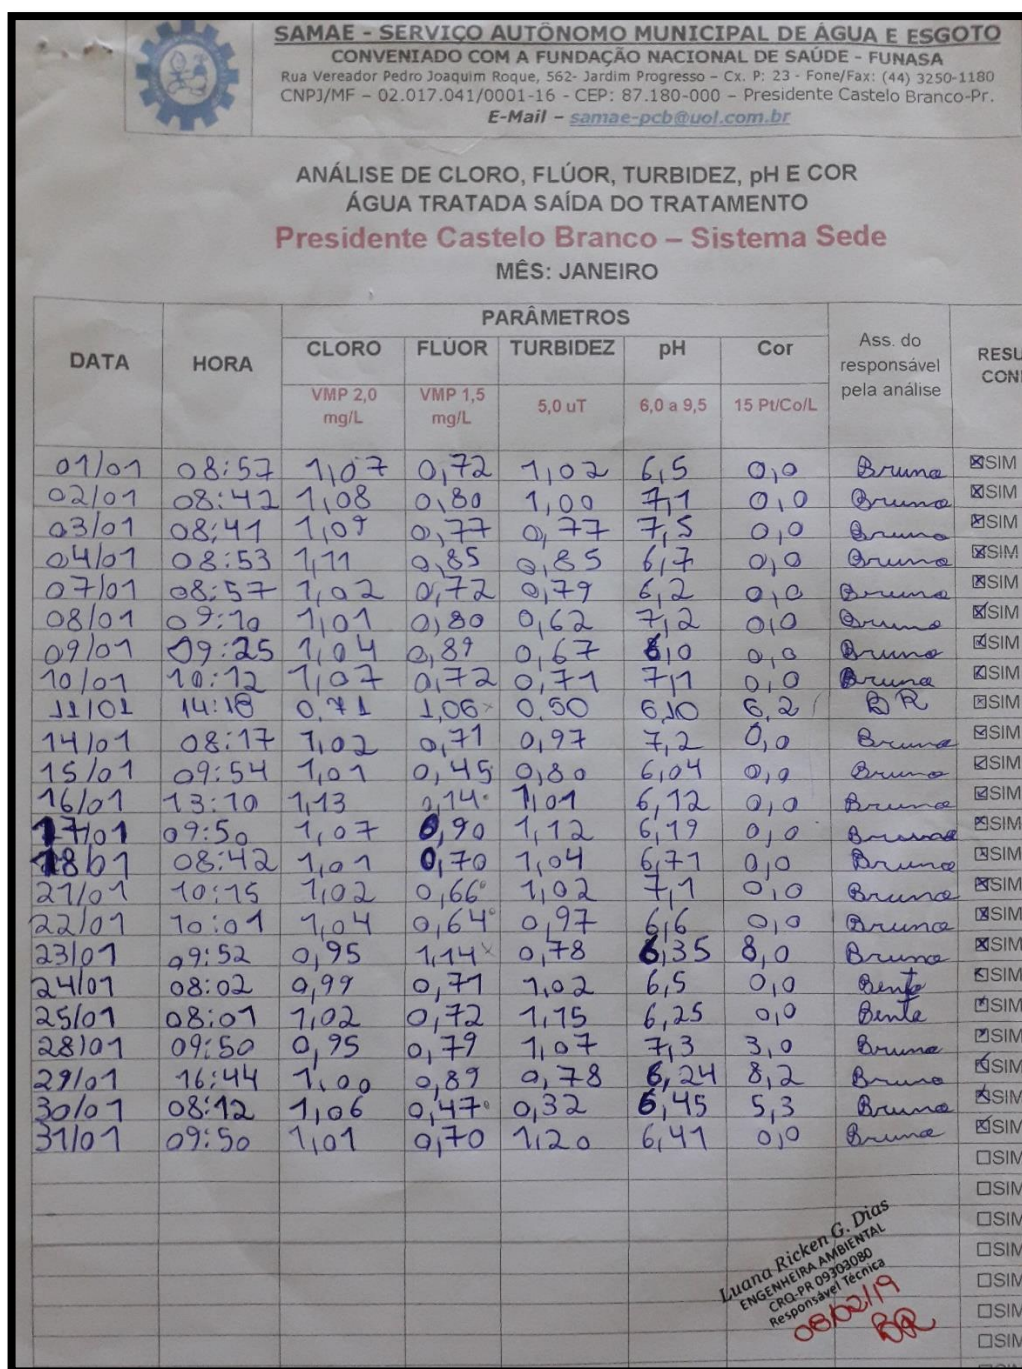 SAMAE - SERVIÇO AUTÔNOMO MUNICIPAL DE ÁGUA E ESGOTO
CONVENIADO COM A FUNDAÇÃO NACIONAL DE SAÚDE - FUNASA
Rua Vereador Pedro Joaquim Roque, 562- Jardim Progresso – Cx. P: 23 - Fone/Fax: (44) 3250-1180
CNPJ/MF – 02.017.041/0001-16 - CEP: 87.180-000 – Presidente Castelo Branco-Pr.
E-Mail – samae-pcb@uol.com.br
ANÁLISE DE CLORO, FLÚOR, TURBIDEZ, pH E COR
ÁGUA TRATADA SAÍDA DO TRATAMENTO
Presidente Castelo Branco – Sistema Sede
MÊS: JANEIRO
PARÂMETROS
DATA HORA CLORO FLÚOR TURBIDEZ pH Cor Ass. do responsável pela análise RESU CON
VMP 2,0 mg/L VMP 1,5 mg/L 5,0 uT 6,0 a 9,5 15 Pt/Co/L
01/01 08:57 1,07 0,72 1,02 6,5 0,0 Bruno SIM
02/01 08:42 1,08 0,80 1,00 7,1 0,0 Bruno SIM
03/01 08:41 1,09 0,77 0,77 7,5 0,0 Bruno SIM
04/01 08:53 1,11 0,85 0,85 6,7 0,0 Bruno SIM
07/01 08:57 1,02 0,72 0,79 6,2 0,0 Bruno SIM
08/01 09:10 1,01 0,80 0,62 7,2 0,0 Bruno SIM
09/01 09:25 1,04 0,89 0,67 6,0 0,0 Bruno SIM
10/01 10:12 1,07 0,72 0,71 7,1 0,0 Bruno SIM
11/01 14:18 0,71 1,06 0,50 6,10 6,2 BR SIM
14/01 08:17 1,02 0,71 0,97 7,2 0,0 Bruno SIM
15/01 09:54 1,01 0,45 0,80 6,04 0,0 Bruno SIM
16/01 13:10 1,13 0,14 1,01 6,12 0,0 Bruno SIM
17/01 09:50 1,07 0,90 1,12 6,19 0,0 Bruno SIM
18/01 08:42 1,01 0,70 1,04 6,71 0,0 Bruno SIM
21/01 10:15 1,02 0,66 1,02 7,1 0,0 Bruno SIM
22/01 10:01 1,04 0,64 0,97 6,6 0,0 Bruno SIM
23/01 09:52 0,95 1,14 0,78 6,35 8,0 Bruno SIM
24/01 08:02 0,99 0,71 1,02 6,5 0,0 Bento SIM
25/01 08:01 1,02 0,72 1,15 6,25 0,0 Bento SIM
28/01 09:50 0,95 0,79 1,07 7,3 3,0 Bruno SIM
29/01 16:44 1,00 0,89 0,78 6,24 8,2 Bruno SIM
30/01 08:12 1,06 0,47 0,32 6,45 5,3 Bruno SIM
31/01 09:50 1,01 0,70 1,20 6,41 0,0 Bruno SIM
SIM
SIM
SIM
SIM
SIM
SIM
SIM
Luana Ricken G. Dias
ENGENHEIRA AMBIENTAL
CRQ-PR 09303080
Responsável Técnica
08/02/19
BR